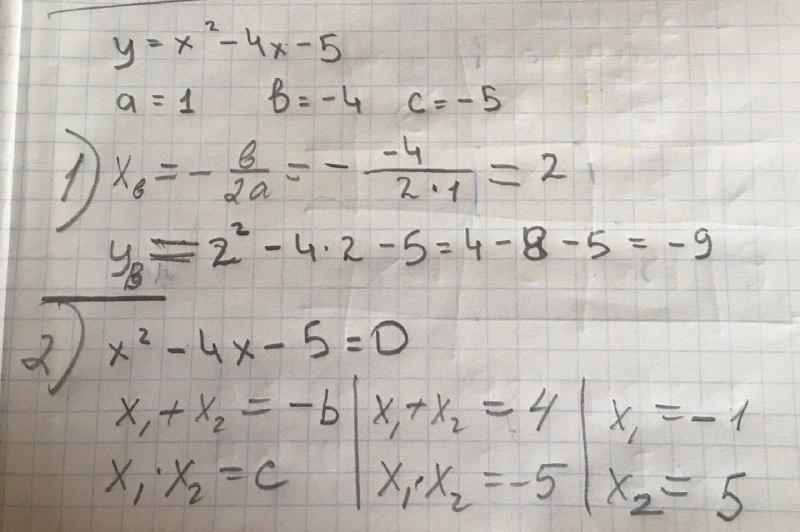 y = x² - 4x - 5
a = 1 b = -4 c = -5
1) x_в = - в/2a = - -4/2·1 = 2
y_в = 2² - 4·2 - 5 = 4 - 8 - 5 = -9
2) x² - 4x - 5 = 0
x₁ + x₂ = -b | x₁ + x₂ = 4 | x₁ = -1
x₁ · x₂ = c | x₁ · x₂ = -5 | x₂ = 5